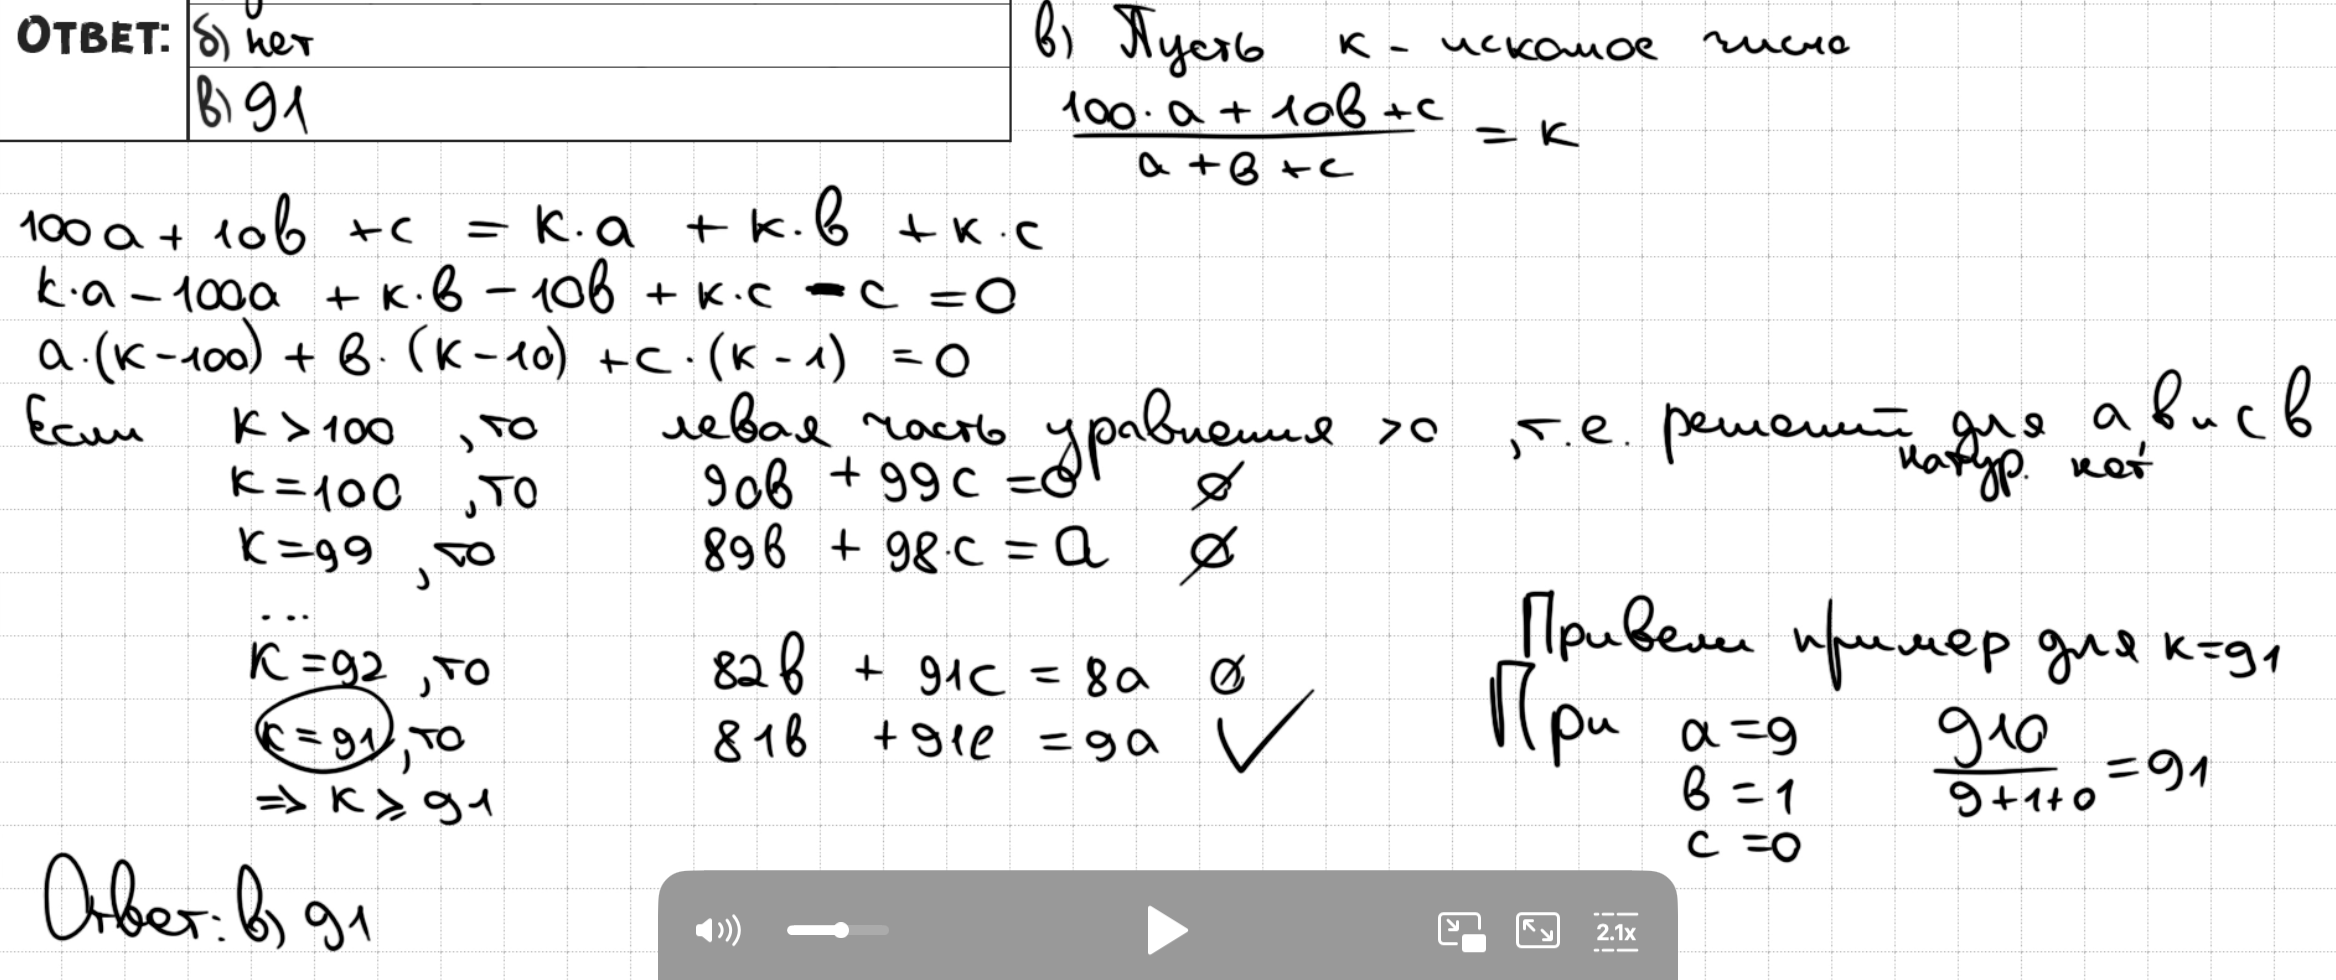 ОТВЕТ:
б) нет
в) 91
в) Пусть к - искомое число
100·a + 10в + c
a + в + c
= к
100a + 10в + c = к·a + к·в + к·c
к·a - 100a + к·в - 10в + к·c - c = 0
a·(к-100) + в·(к-10) + c·(к-1) = 0
Если к > 100, то левая часть уравнения > 0, т.е. решений для a, в и c в
натур. нет
к = 100, то 90в + 99c = 0 ∅
к = 99, то 89в + 98·c = a ∅
...
к = 92, то 82в + 91c = 8a ∅
к = 91, то 81в + 91c = 9a ✓
=> к ⩾ 91
Привели пример для к=91
При a = 9
в = 1
c = 0
910
9+1+0
= 91
Ответ: в) 91
2.1x